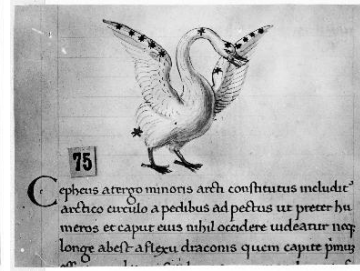 75
Cepheus a tergo minoris arcti constitutus includit᷑
arctico circulo a pedibus ad pectus ut preter hu
meros et caput eius nihil occidere videatur neq;
longe abest a flexu draconis quem capite primus